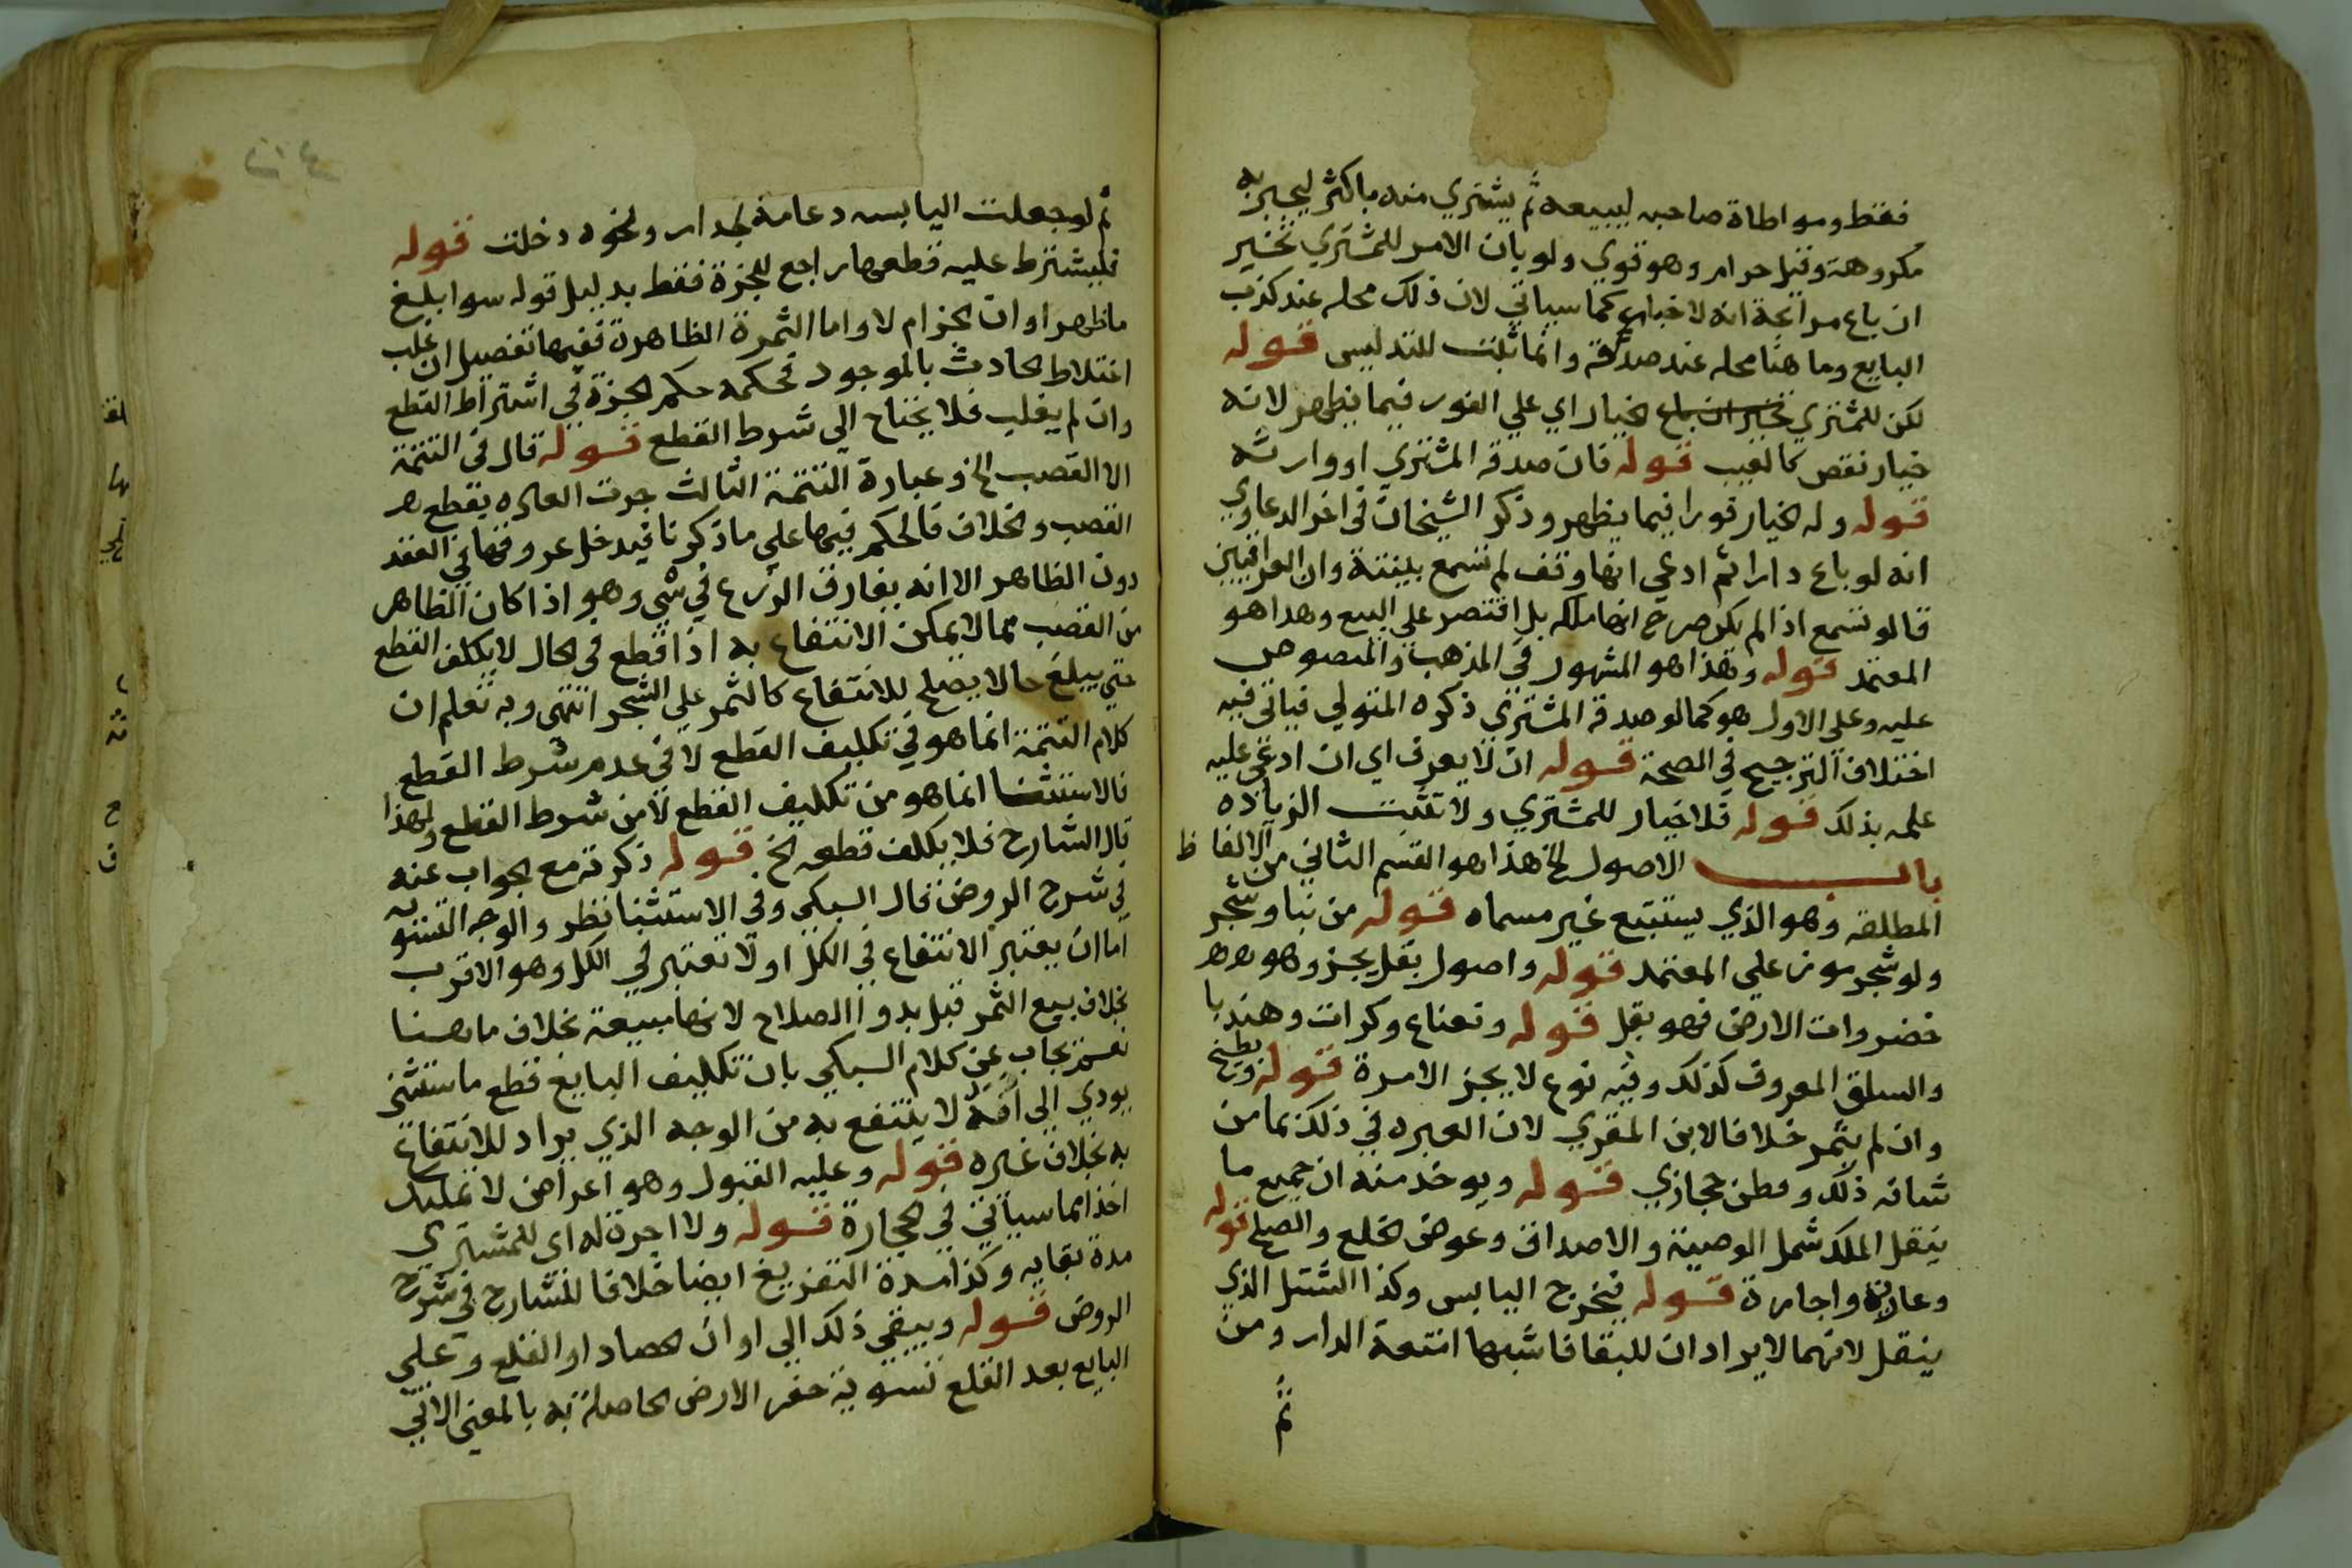 فقط ومواطاة صاحبه ليبيعه ثم يشتري منه باكثر ليخبر به
مكروهة وقيل حرام وهو قوي ولو بان الامر للمشتري تخير
ان باع مرابحة انه لا خيار كما سياتي لان ذلك محله عند كذب
البايع وما هنا محله عند صدقه وانما ثبت للتدليس قوله
لكن للمشتري الخيار اي علي الفور فيما يظهر لانه
خيار نقص كالعيب قوله فان صدقه المشتري او وارثه
قوله وله الخيار فورا فيما يظهر وذكر الشيخان في اخر الدعاوي
انه لو باع دارا ثم ادعي انها وقف لم تسمع بينته وان العراقيين
قالو تسمع اذا لم يكن صرح انها ملكه بل اقتصر علي البيع وهذا هو
المعتمد قوله وهذا هو المشهور في المذهب والمنصوص
عليه وعلى الاول هو كما لو صدقه المشتري ذكره المتولي فياتي فيه
اختلاف الترجيح في الصحة قوله ان لا يعرف اي ان ادعي عليه
علمه بذلك قوله فلا خيار للمشتري ولا تثبت الزياده
باب الاصول الخ هذا هو القسم الثاني من الالفاظ
المطلقه وهو الذي يستتبع غير مسماه قوله من بنا وشجر
ولو شجر موز علي المعتمد قوله واصول بقل يجز وهو
خضروات الارض فهو بقل قوله ونعناع وكرات وهندبا
والسلق المعروف كذلك وفيه نوع لا يجز الا مرة قوله وبطيخ
وان لم يثمر خلافا لابن المقري لان العبره في ذلك بما من
شانه ذلك وقطن حجازي قوله ويوخد منه ان جميع ما
ينقل الملك شمل الوصية والاصداق وعوض الخلع والصلح قوله
وعارية واجارة قوله فيخرج اليابس وكذا الشتل الذي
ينقل لانهما لا يرادان للبقا فاشبها امتعة الدار ومن
ثم
ثم لو جعلت اليابسه دعامة لجدار ونحوه دخلت قوله
فليشترط عليه قطعها راجع للجزة فقط بدليل قوله سوا بلغ
ما ظهر اوان الجزام لا واما الثمرة الظاهرة ففيها تفصيل ان غلب
اختلاط الحادث بالموجود فحكمه حكم الجزة في اشتراط القطع
وان لم يغلب فلا يحتاج الي شرط القطع قوله قال في التتمة
الا القصب الخ وعبارة التتمة الثالث جرت العاده بقطع
القصب والخلاف فالحكم فيها علي ما ذكرنا فيدخل عروقها في العقد
دون الظاهر الا انه يفارق الزرع في شي وهو اذا كان الظاهر
من القصب مما لا يمكن الانتفاع به اذا قطع في الحال لا يكلف القطع
حتي يبلغ حالا يصلح للانتفاع كالثمر علي الشجر انتهى وبه تعلم ان
كلام التتمة انما هو في تكليف القطع لا في عدم شرط القطع
فالاستثنا انما هو من تكليف القطع لا من شرط القطع ولهذا
قال الشارح فلا يكلف قطعه الخ قوله ذكرته مع الجواب عنه
في شرح الروض فقال السبكي وفي الاستثنا نظر والوجه التسويه
اما ان يعتبر الانتفاع في الكل او لا تعتبر في الكل وهو الاقرب
بخلاف بيع الثمر قبل بدو الصلاح لانها مبيعة بخلاف ما هنا
يجاب عن كلام السبكي بان تكليف البايع قطع ما استثنى
يودي الى انه لا ينتفع به من الوجه الذي يراد للانتفاع
به بخلاف غيره قوله وعليه القبول وهو اعراض لا تمليك
اخذا مما سياتي في الحجارة قوله ولا اجرة له اي للمشتري
مدة بقايه وكذا مدة التفريغ ايضا خلافا للشارح في شرح
الروض قوله ويبقي ذلك الي اوان الحصاد او القلع وعلي
البايع بعد القلع تسوية حفر الارض الحاصلة به بالمعني الاتي